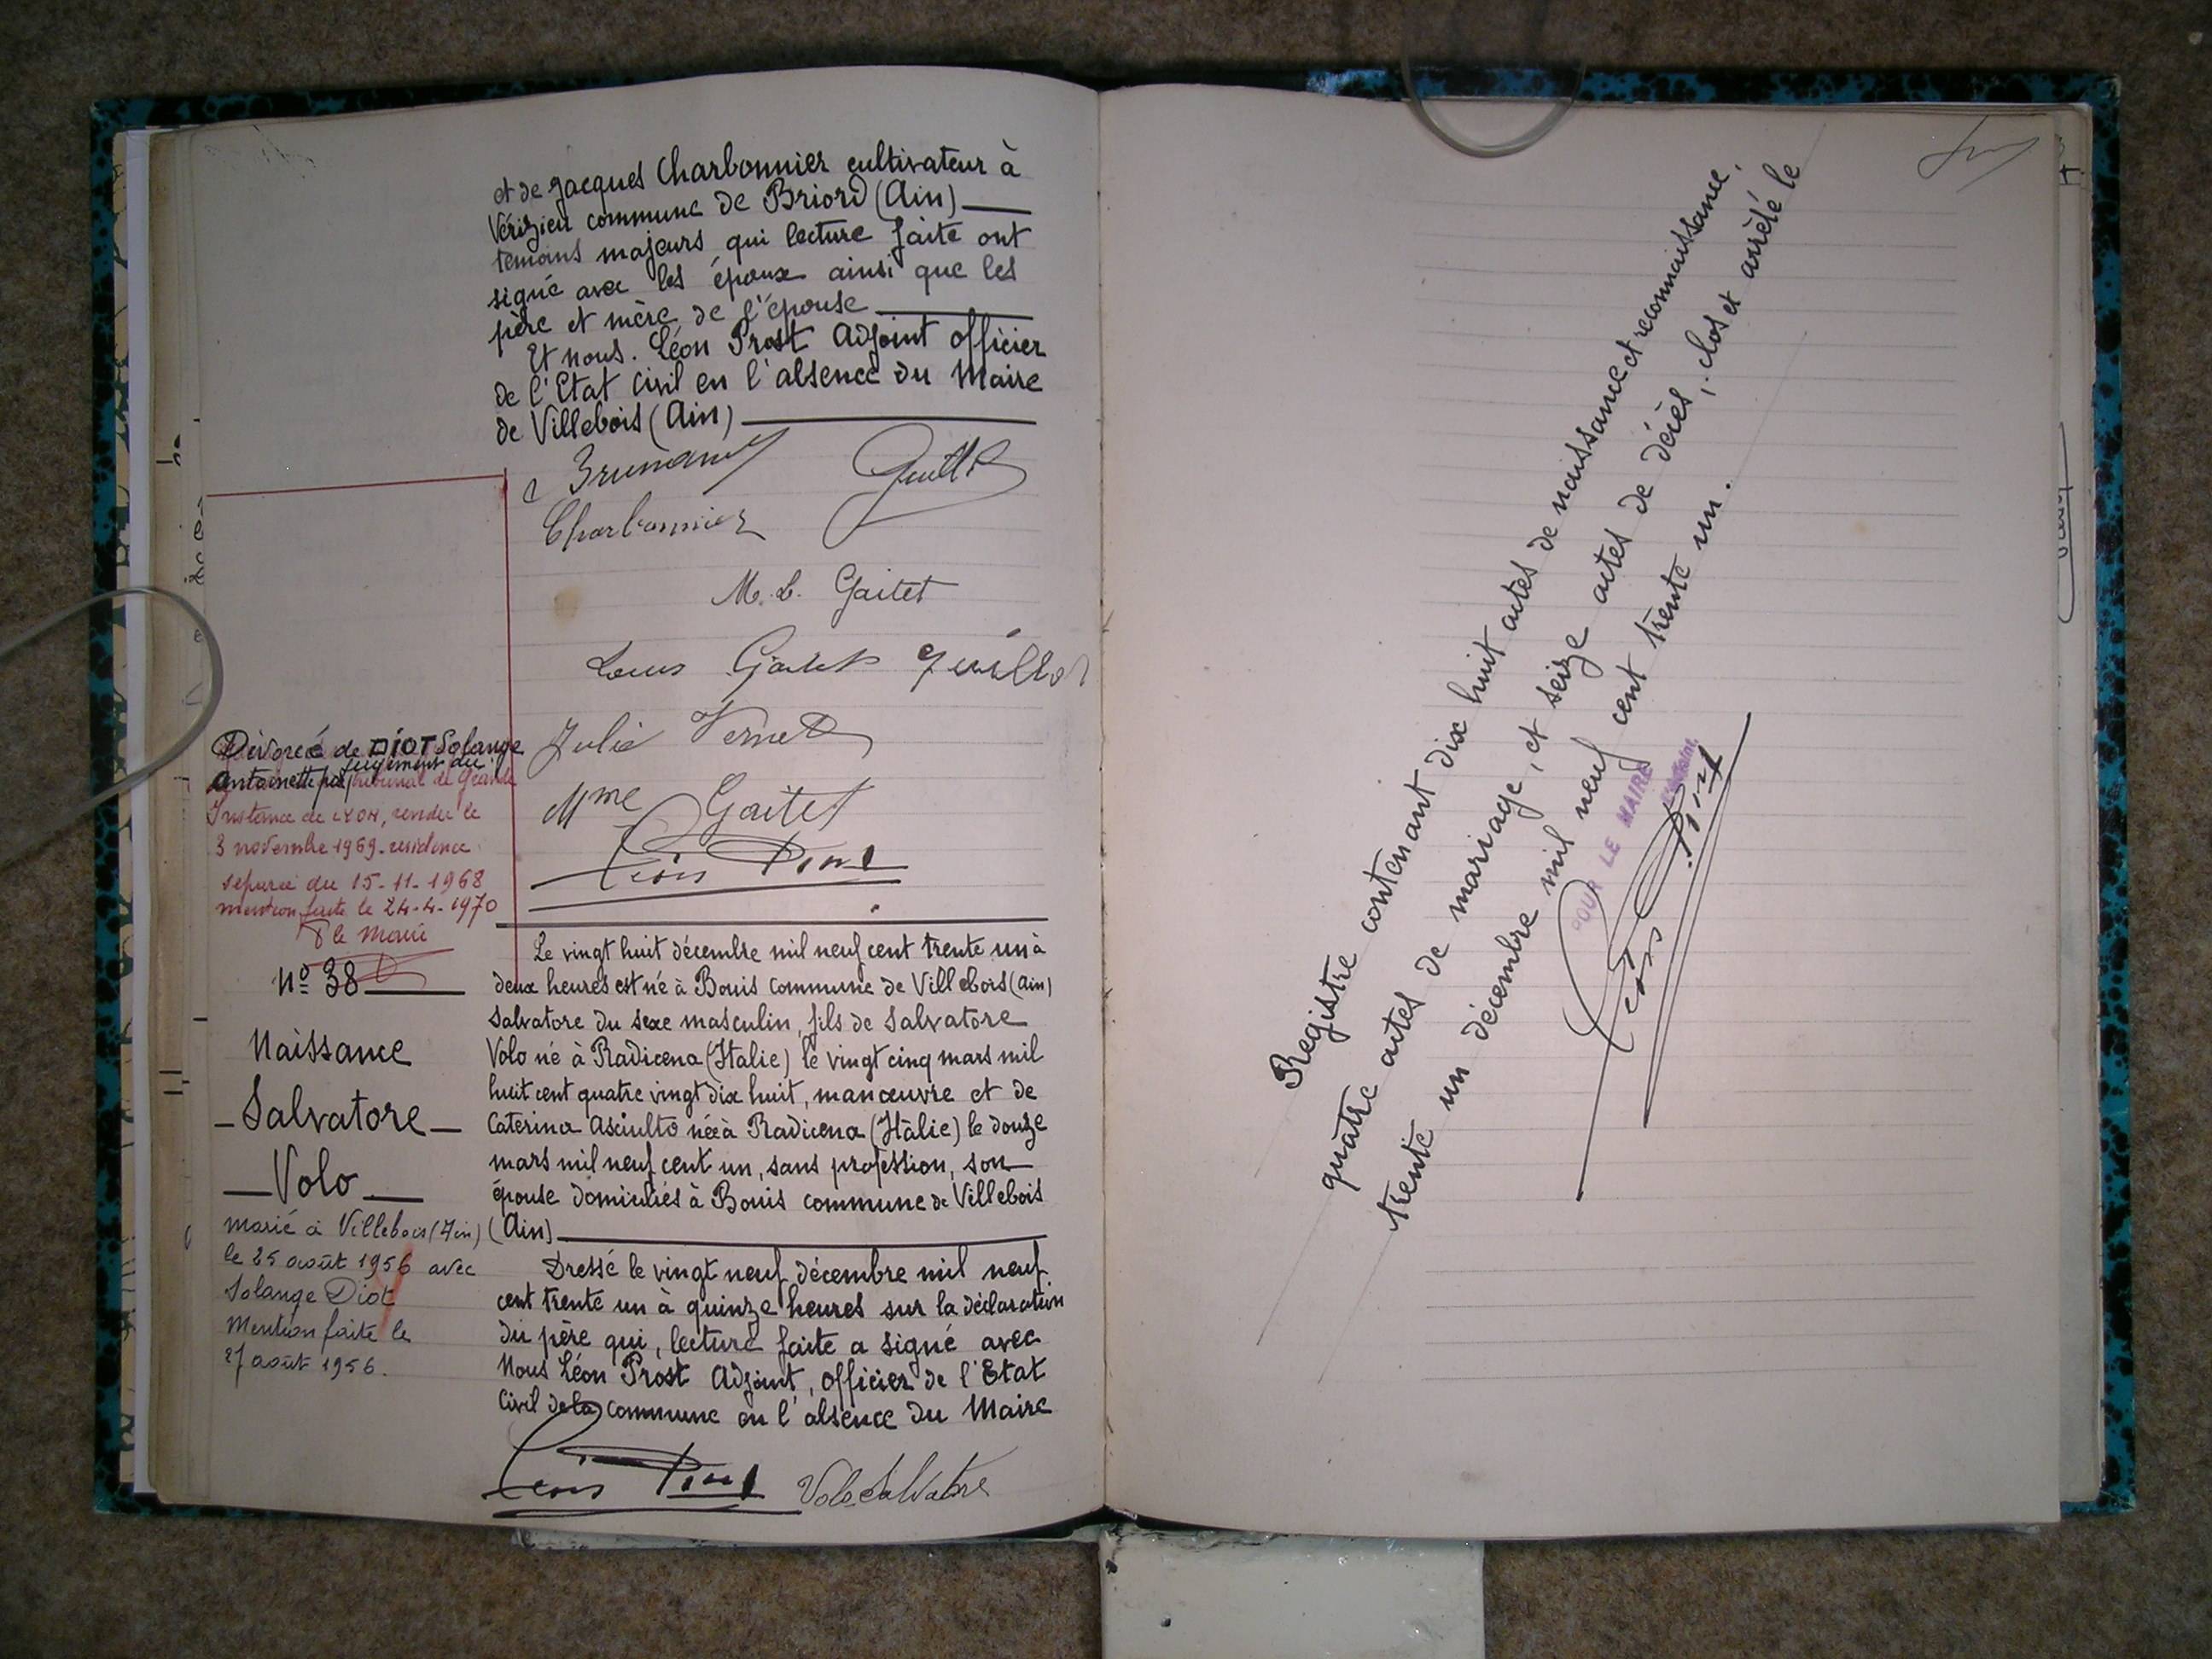 et de Jacques Charbonnier cultivateur à
Vérizieu commune de Briord (Ain)
temoins majeurs qui lecture faite ont
signé avec les époux ainsi que les
père et mère de l'épouse
Et nous. Léon Prost Adjoint officier
de l'Etat Civil en l'absence du Maire
de Villebois (Ain)
Charbonnier
M. L. Gaitet
Louis Gaitet
Julie Vernet
Mme Gaitet
Léon Prost
Divorcé de DIOT Solange
Antoinette par jugement du
tribunal de Grande
Instance de LYON, rendu le
3 novembre 1969 - residence
séparée du 15-11-1968
mention faite le 24-4-1970
P le Maire
No 38
Naissance
Salvatore
Volo
marié à Villebois (Ain)
le 25 août 1956 avec
Solange Diot
Mention faite le
27 août 1956.
Le vingt huit décembre mil neuf cent trente un à
deux heures est né à Bouis commune de Villebois (Ain)
Salvatore du sexe masculin, fils de Salvatore
Volo né à Radicena (Italie) le vingt cinq mars mil
huit cent quatre vingt dix huit, manœuvre et de
Caterina Asciulto née à Radicena (Italie) le douze
mars mil neuf cent un, sans profession, son
épouse domiciliés à Bouis commune de Villebois
(Ain)
Dressé le vingt neuf décembre mil neuf
cent trente un à quinze heures sur la déclaration
du père qui, lecture faite a signé avec
Nous Léon Prost Adjoint, officier de l'Etat
Civil de la commune en l'absence du Maire
Léon Prost Volo Salvatore
Registre contenant dix huit actes de naissance et reconnaissance,
quatre actes de mariage, et seize actes de décès, clos et arrêté le
trente un décembre mil neuf cent trente un.
POUR LE MAIRE
L'Adjoint
Léon Prost